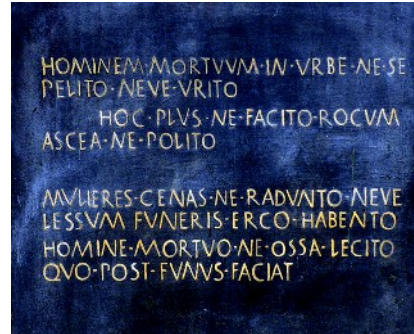 HOMINEM·MORTVVM·IN·VRBE·NE·SE
PELITO·NEVE·VRITO
HOC·PLVS·NE·FACITO·ROCVM
ASCEA·NE·POLITO
MVLIERES·CENAS·NE·RADVNTO·NEVE
LESSVM FVNERIS·ERCO·HABENTO
HOMINE·MORTVO·NE·OSSA·LECITO
QVO·POST·FVNVS·FACIAT